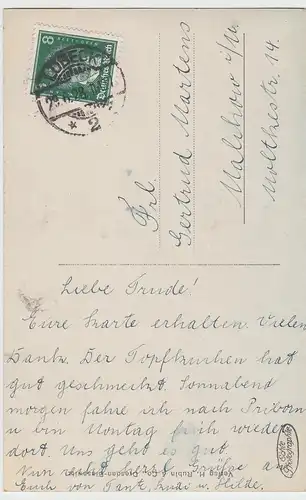 8
Deutsches Reich
LÜBECK
2
Frl.
Gertrud Martens
Malchow i/M.
Moltkestr. 14
Liebe Trude!
Eure Karte erhalten. Vielen
Dank. Der Topfkuchen hat
gut geschmeckt. Sonnabend
morgen fahre ich nach Priborn
u bin Montag früh wieder
dort. Uns geht es gut.
Nun Grüße an
Euch von Tante, u. Hilde.